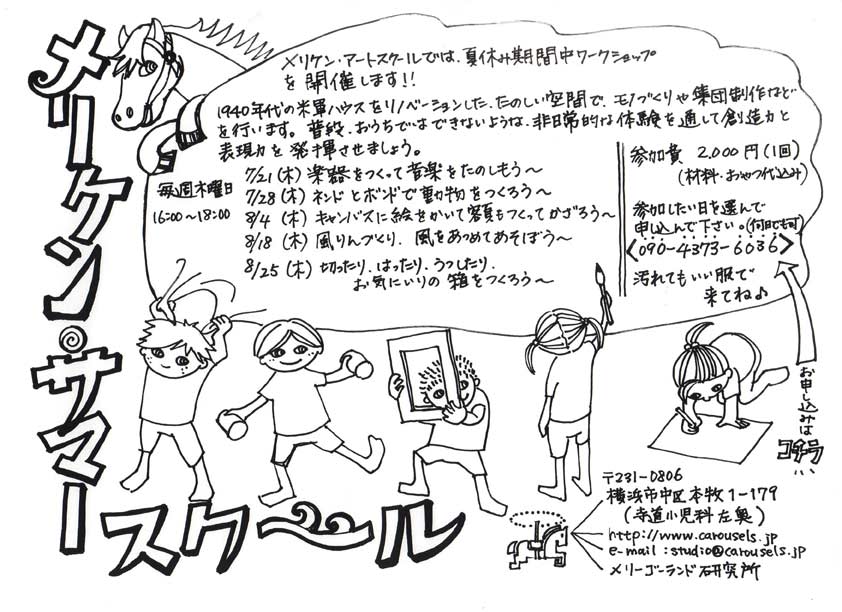 メリケン・サマースクール
メリケン・アートスクールでは、夏休み期間中ワークショップ
を開催します!!
1940年代の米軍ハウスをリノベーションした、たのしい空間で、モノづくりや集団制作など
を行います。普段、おうちではできないような、非日常的な体験を通して創造力と
表現力を発揮させましょう。
毎週木曜日
16:00~18:00
7/21(木) 楽器をつくって音楽をたのしもう~
7/28(木) ネンドとボンドで動物をつくろう~
8/4 (木) キャンバスに絵をかいて額もつくってかざろう~
8/18(木) 風りんづくり、風をあつめてあそぼう~
8/25(木) 切ったり、はったり、うつしたり、
お気にいりの箱をつくろう~
参加費 2,000円(1回)
(材料・おやつ代込み)
参加したい日を選んで
申し込んで下さい。(何日でも可)
<090-4373-6036>
汚れてもいい服で
来てね♪
お申し込みは
コチラ…
〒231-0806
横浜市中区本牧1-179
(寺道小児科左奥)
http://www.carousels.jp
e-mail:studio@carousels.jp
メリーゴーランド研究所